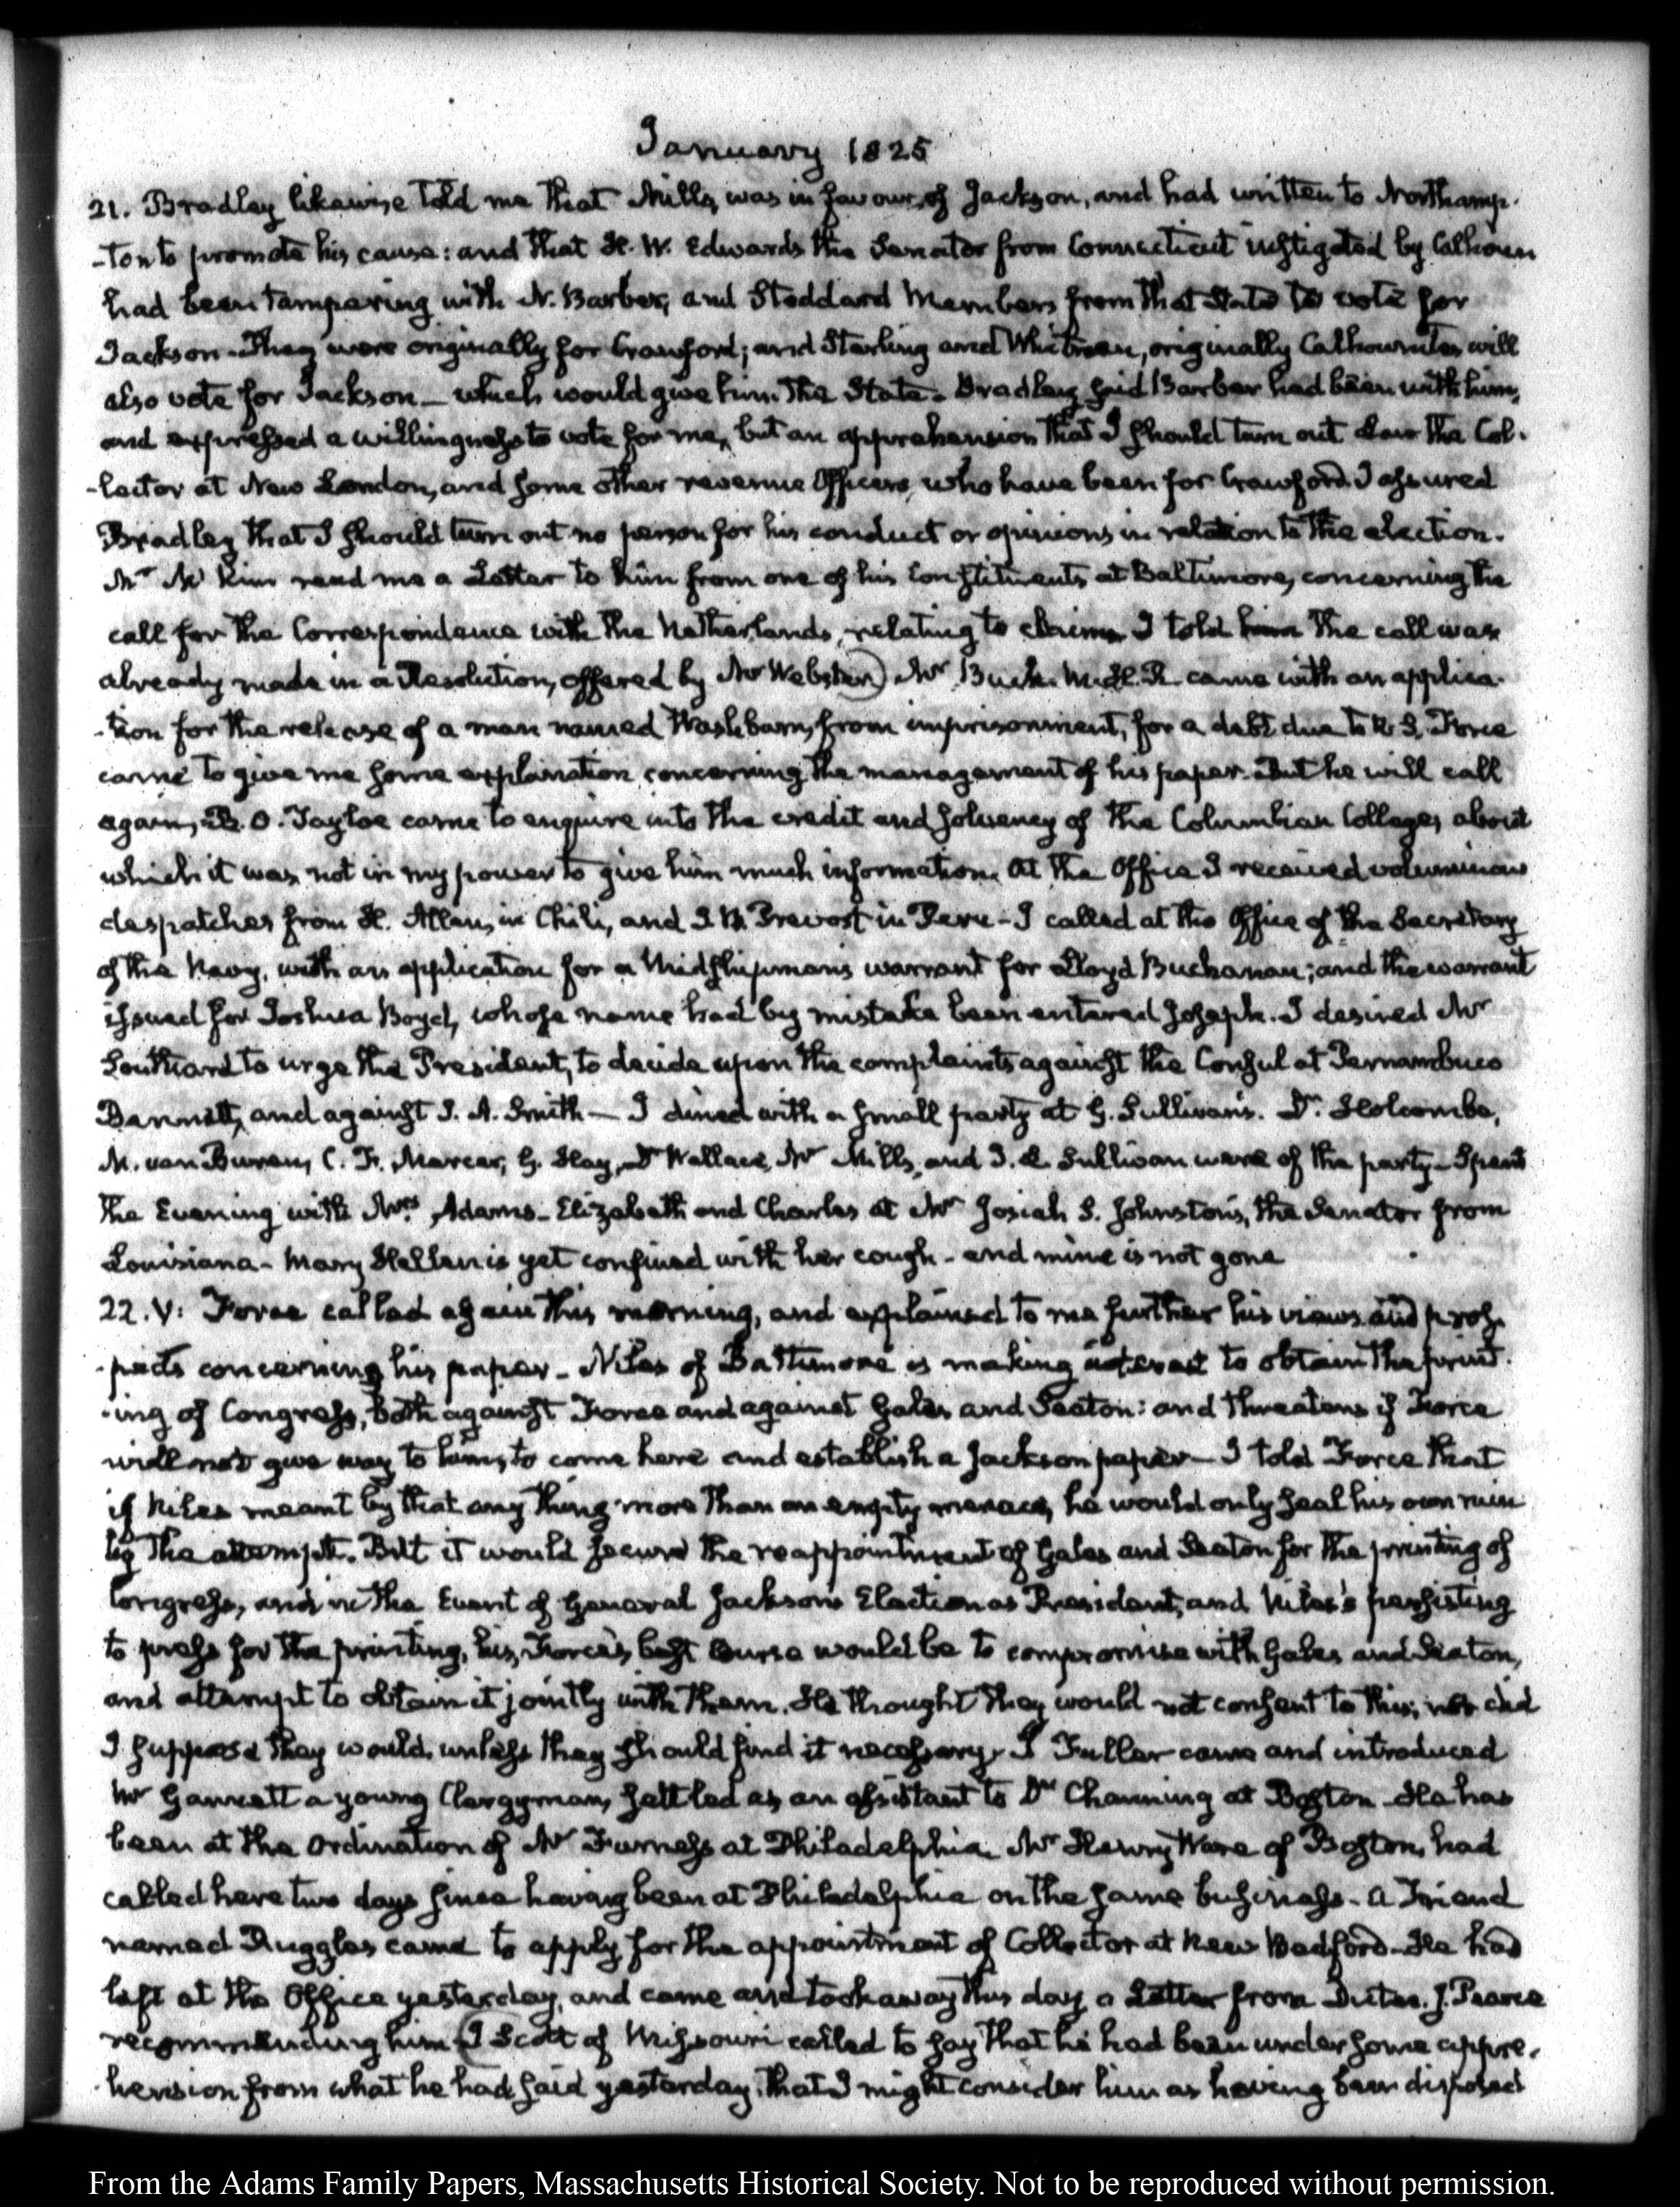 January 1825
21. Bradley likewise told me that Mills was in favour of Jackson, and had written to Northamp-
-ton to promote his cause: and that H. W. Edwards the Senator from Connecticut instigated by Calhoun
had been tampering with N. Barber, and Stoddard Members from that State to vote for
Jackson. They were originally for Crawford; and Sterling and Whitman, originally Calhounites will
also vote for Jackson — which would give him the State. Bradley said Barber had been with him,
and expressed a willingness to vote for me, but an apprehension that I should turn out the Col-
-lector at New London, and some other revenue Officers, who have been for Crawford. I assured
Bradley that I should turn out no person for his conduct or opinions in relation to the election.
Mr. McKim read me a Letter to him from one of his Constituents at Baltimore, concerning the
call for the Correspondence with the Netherlands, relating to claims I told him the call was
already made in a Resolution, offered by Mr Webster) Mr. Buck. M.H.R. came with an applica-
-tion for the release of a man named Washbarn, from imprisonment, for a debt due to U.S. Force
came to give me some explanation concerning the management of his paper. But he will call
again, B. O. Tayloe came to enquire into the credit and solvency of the Columbian College, about
which it was not in my power to give him much information. At the Office I received voluminous
despatches from H. Allen, in Chili, and J. B. Prevost in Peru - I called at the Office of the Secretary
of the Navy, with an application for a Midshipman's warrant for Lloyd Buchanan; and the warrant
issued for Joshua Boyd, whose name had by mistake been entered Joseph. I desired Mr
Southard to urge the President, to decide upon the complaints against the Consul at Pernambuco
Bennett, and against J. A. Smith — I dined with a small party at G. Sullivan's. Dr. Holcombe,
M. van Buren, C. F. Mercer, G. Hay, Dr Wallace, Mr Mills, and J. L. Sullivan were of the party - Spent
the Evening with Mrs. Adams - Elizabeth and Charles at Mr Josiah S. Johnston's, the Senator from
Louisiana - Mary Hellen is yet confined with her cough - and mine is not gone
22. V: Force called again this morning, and explained to me further his views and pros-
-pects concerning his paper - Niles of Baltimore is making interest to obtain the print-
-ing of Congress, both against Force and against Gales and Seaton: and threatens if Force
will not give way to him, to come here and establish a Jackson paper — I told Force that
if Niles meant by that any thing more than an empty menace, he would only seal his own ruin
by the attempt. But it would secure the reappointment of Gales and Seaton for the printing of
Congress, and in the Event of General Jackson's Election as President, and Niles's persisting
to press for the printing, his, Force's, best Course would be to compromise with Gales and Seaton,
and attempt to obtain it jointly with them. He thought they would not consent to this; nor did
I suppose they would, unless they should find it necessary. T Fuller came and introduced
Mr Gannett a young Clergyman, settled as an assistant to Dr Channing at Boston - He has
been at the Ordination of Mr Furness at Philadelphia. Mr Henry Ware of Boston, had
called here two days since having been at Philadelphia on the same business - A Friend
named Ruggles came to apply for the appointment of Collector at New Bedford - He had
left at the Office yesterday, and came and took away this day a Letter from Dutee. J. Pearce
recommending him (J Scott of Missouri called to say that he had been under some appre-
-hension from what he had said yesterday, that I might consider him as having been disposed
From the Adams Family Papers, Massachusetts Historical Society. Not to be reproduced without permission.